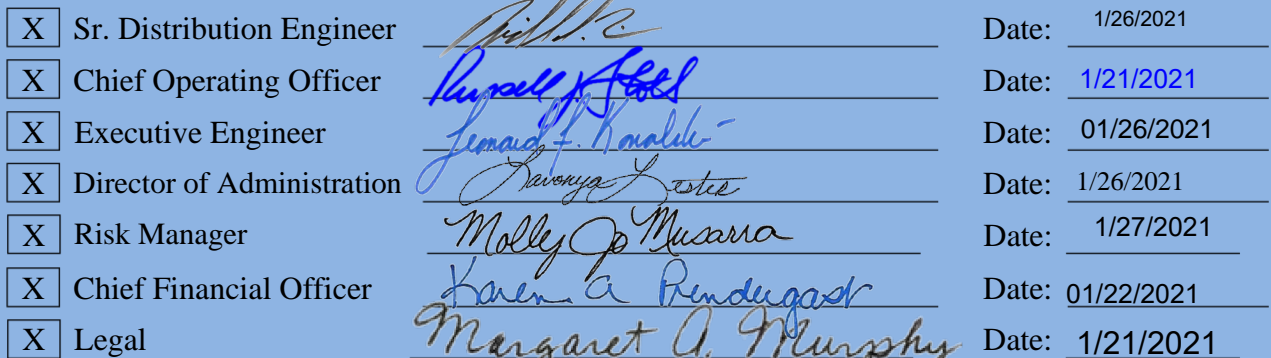 X Sr. Distribution Engineer Date: 1/26/2021
X Chief Operating Officer Russell J Stoll Date: 1/21/2021
X Executive Engineer Leonard F. Kowalski Date: 01/26/2021
X Director of Administration Lavonya Lester Date: 1/26/2021
X Risk Manager Molly Jo Musarra Date: 1/27/2021
X Chief Financial Officer Karen A Prendergast Date: 01/22/2021
X Legal Margaret A. Murphy Date: 1/21/2021